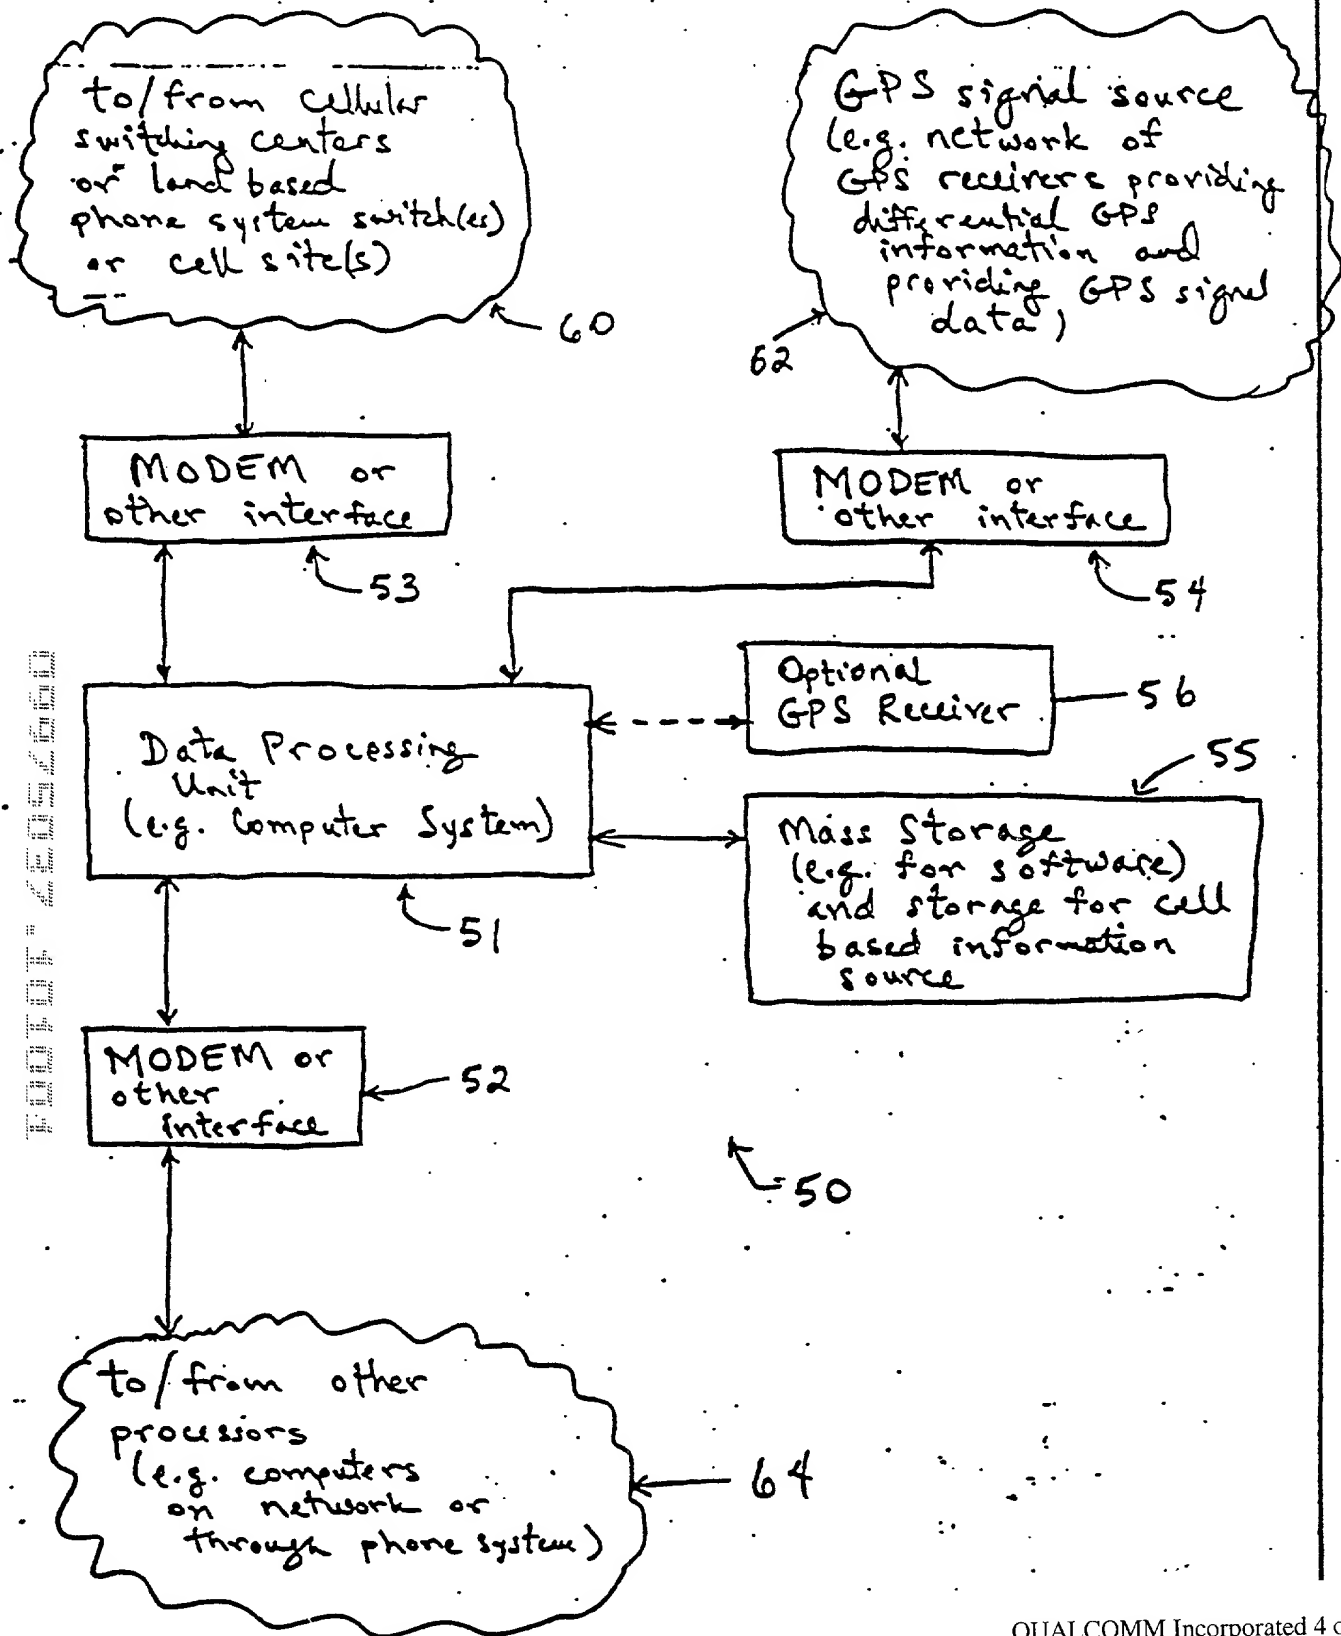 to/from cellular
switching centers
or land based
phone system switch(es)
or cell site(s)
60
GPS signal source
(e.g. network of
GPS receivers providing
differential GPS
information and
providing GPS signal
data)
62
MODEM or
other interface
53
MODEM or
other interface
54
Optional
GPS Receiver
56
Data Processing
Unit
(e.g. Computer System)
51
55
Mass Storage
(e.g. for software)
and storage for cell
based information
source
MODEM or
other
interface
52
50
to/from other
processors
(e.g. computers
on network or
through phone system)
64
QUALCOMM Incorporated 4